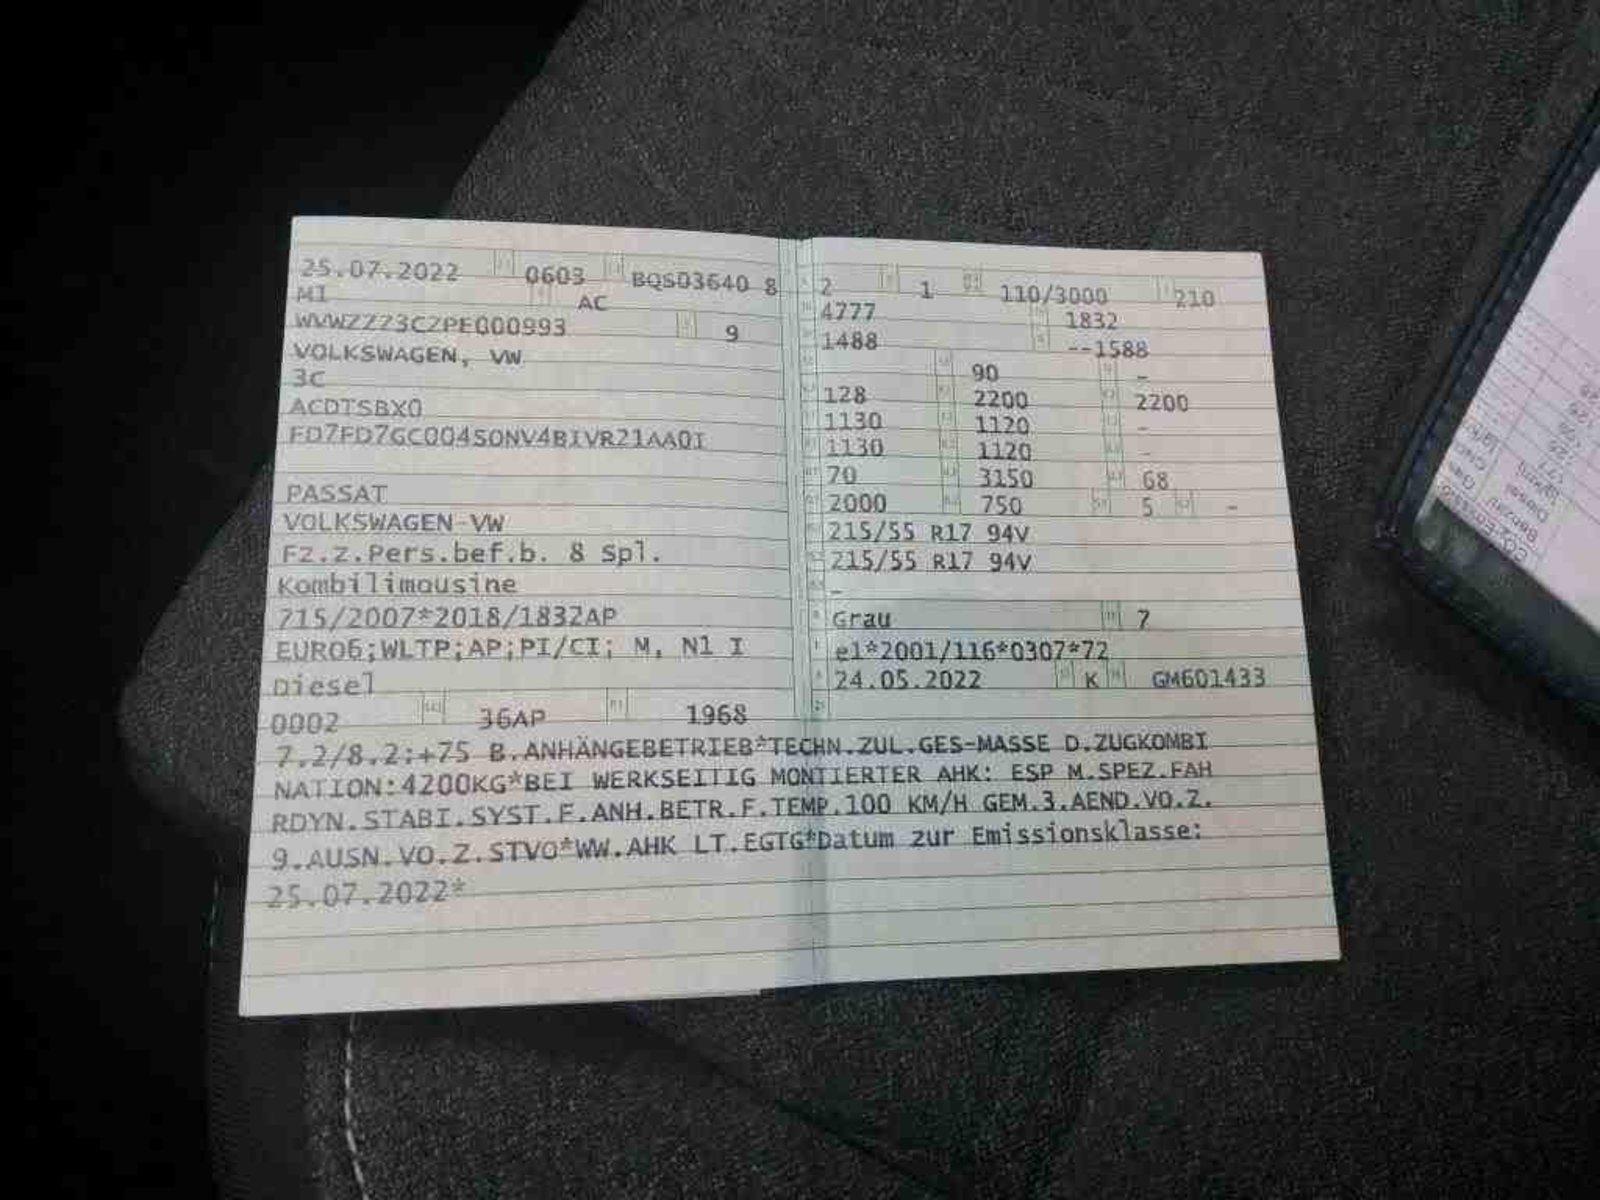 25.07.2022 0603 BQS03640 8
M1 AC
WVWZZZ3CZPE000993 9
VOLKSWAGEN, VW
3C
ACDTSBX0
FD7FD7GC004SONV4BIVR21AA0I
PASSAT
VOLKSWAGEN-VW
Fz.z.Pers.bef.b. 8 Spl.
Kombilimousine
715/2007*2018/1832AP
EURO6;WLTP;AP;PI/CI; M, N1 I
Diesel
0002 36AP 1968
2 1 110/3000 210
4777 1832
1488 --1588
90 -
128 2200 2200
1130 1120 -
1130 1120 -
70 3150 68
2000 750 5 -
215/55 R17 94V
215/55 R17 94V
-
Grau 7
e1*2001/116*0307*72
24.05.2022 K GM601433
7.2/8.2:+75 B.ANHÄNGEBETRIEB*TECHN.ZUL.GES-MASSE D.ZUGKOMBI
NATION:4200KG*BEI WERKSEITIG MONTIERTER AHK: ESP M.SPEZ.FAH
RDYN.STABI.SYST.F.ANH.BETR.F.TEMP.100 KM/H GEM.3.AEND.VO.Z.
9.AUSN.VO.Z.STVO*WW.AHK LT.EGTG*Datum zur Emissionsklasse:
25.07.2022*